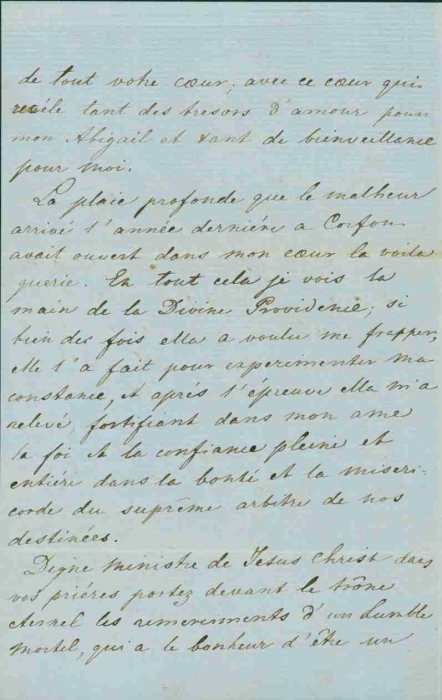 de tout votre cœur; avec ce cœur qui
recéle tant des tresors d'amour pour
mon Abigail et tant de bienveillance
pour moi.
La plaie profonde que le malheur
arrivé l'année derniére a Corfou
avait ouvert dans mon cœur la voila
guerie. En tout cela je vois la
main de la Divine Providence; si
bien des fois ella a voulu me frapper,
elle l'a fait pour experimenter ma
constance, et aprés l'épreuve ella m'a
relevé, fortifiant dans mon ame
la foi et la confiance pleine et
entiére dans la bonté et la miseri-
corde du suprême arbitre de nos
destinées.
Digne Ministre de Jesus Christ dans
vos priéres portez devant le trône
eternel les remerciments d'un humble
mortel, qui a le bonheur d'être un